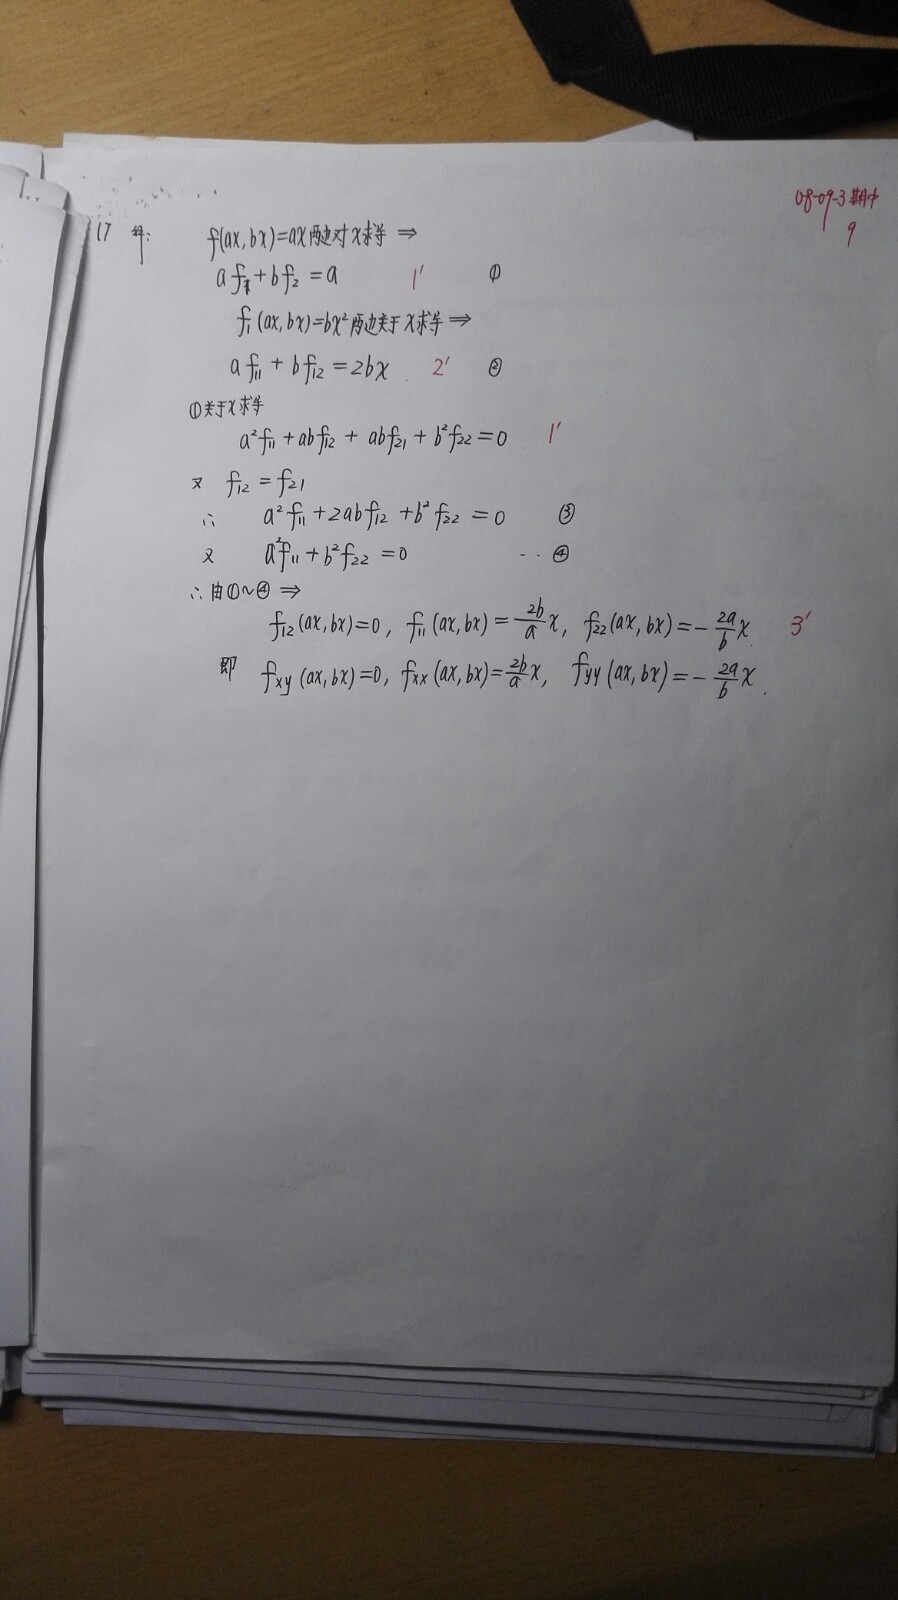 08-09-3期中
9
17 解:
f(ax,bx)=ax两边对x求导 ⇒
af₁+bf₂=a 1′ ①
f₁(ax,bx)=bx²两边关于x求导 ⇒
af₁₁+bf₁₂=2bx 2′ ②
①关于x求导
a²f₁₁+abf₁₂+abf₂₁+b²f₂₂=0 1′
又 f₁₂=f₂₁
∴ a²f₁₁+2abf₁₂+b²f₂₂=0 ③
又 a²f₁₁+b²f₂₂=0 -·· ④
∴由①~④ ⇒
f₁₂(ax,bx)=0, f₁₁(ax,bx)=2b/a x, f₂₂(ax,bx)=-2a/b x. 3′
即 fxy(ax,bx)=0, fxx(ax,bx)=2b/a x, fyy(ax,bx)=-2a/b x.